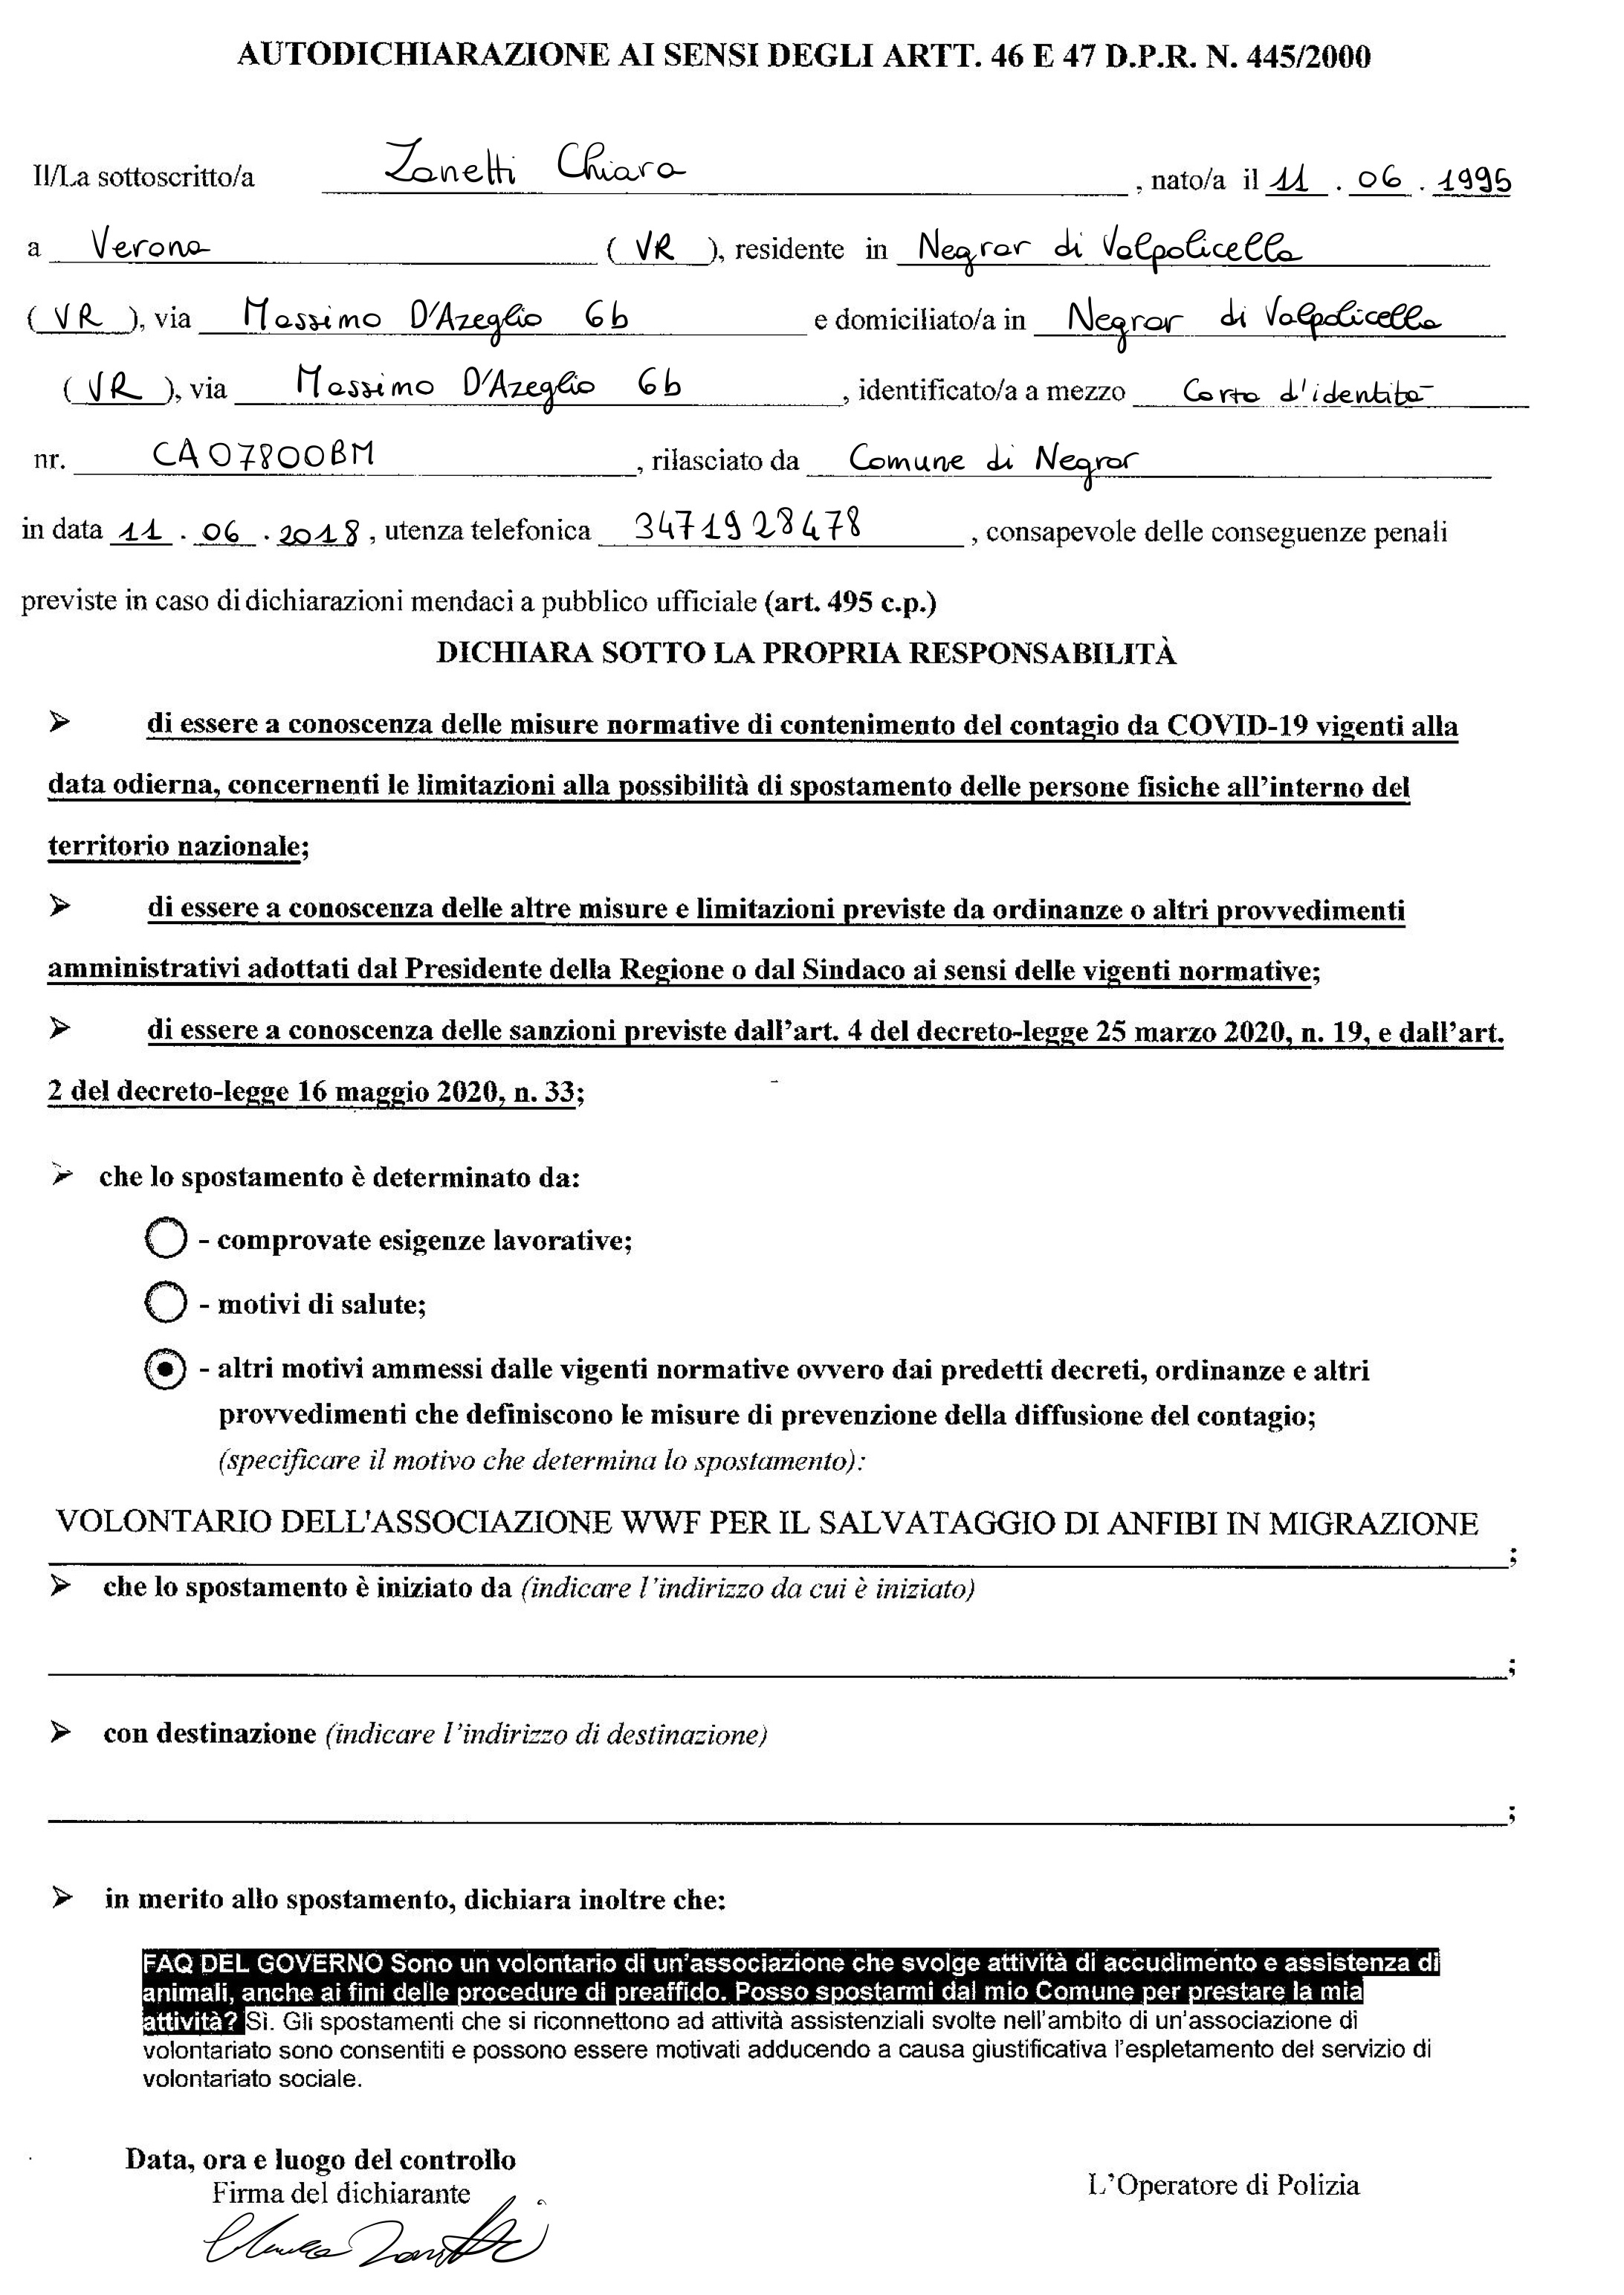 AUTODICHIARAZIONE AI SENSI DEGLI ARTT. 46 E 47 D.P.R. N. 445/2000
Il/La sottoscritto/a Zanetti Chiara, nato/a il 11 . 06 . 1995
a Verona ( VR ), residente in Negrar di Valpolicella
( VR ), via Massimo D'Azeglio 6b e domiciliato/a in Negrar di Valpolicella
( VR ), via Massimo D'Azeglio 6b, identificato/a a mezzo Carta d'identità
nr. CA07800BM, rilasciato da Comune di Negrar
in data 11 . 06 . 2018, utenza telefonica 3471928478, consapevole delle conseguenze penali
previste in caso di dichiarazioni mendaci a pubblico ufficiale (art. 495 c.p.)
DICHIARA SOTTO LA PROPRIA RESPONSABILITÀ
➢ di essere a conoscenza delle misure normative di contenimento del contagio da COVID-19 vigenti alla
data odierna, concernenti le limitazioni alla possibilità di spostamento delle persone fisiche all'interno del
territorio nazionale;
➢ di essere a conoscenza delle altre misure e limitazioni previste da ordinanze o altri provvedimenti
amministrativi adottati dal Presidente della Regione o dal Sindaco ai sensi delle vigenti normative;
➢ di essere a conoscenza delle sanzioni previste dall'art. 4 del decreto-legge 25 marzo 2020, n. 19, e dall'art.
2 del decreto-legge 16 maggio 2020, n. 33;
➢ che lo spostamento è determinato da:
- comprovate esigenze lavorative;
- motivi di salute;
- altri motivi ammessi dalle vigenti normative ovvero dai predetti decreti, ordinanze e altri
provvedimenti che definiscono le misure di prevenzione della diffusione del contagio;
(specificare il motivo che determina lo spostamento):
VOLONTARIO DELL'ASSOCIAZIONE WWF PER IL SALVATAGGIO DI ANFIBI IN MIGRAZIONE
;
➢ che lo spostamento è iniziato da (indicare l'indirizzo da cui è iniziato)
;
➢ con destinazione (indicare l'indirizzo di destinazione)
;
➢ in merito allo spostamento, dichiara inoltre che:
FAQ DEL GOVERNO Sono un volontario di un'associazione che svolge attività di accudimento e assistenza di
animali, anche ai fini delle procedure di preaffido. Posso spostarmi dal mio Comune per prestare la mia
attività? Sì. Gli spostamenti che si riconnettono ad attività assistenziali svolte nell'ambito di un'associazione di
volontariato sono consentiti e possono essere motivati adducendo a causa giustificativa l'espletamento del servizio di
volontariato sociale.
Data, ora e luogo del controllo
Firma del dichiarante L'Operatore di Polizia
Chiara Zanetti